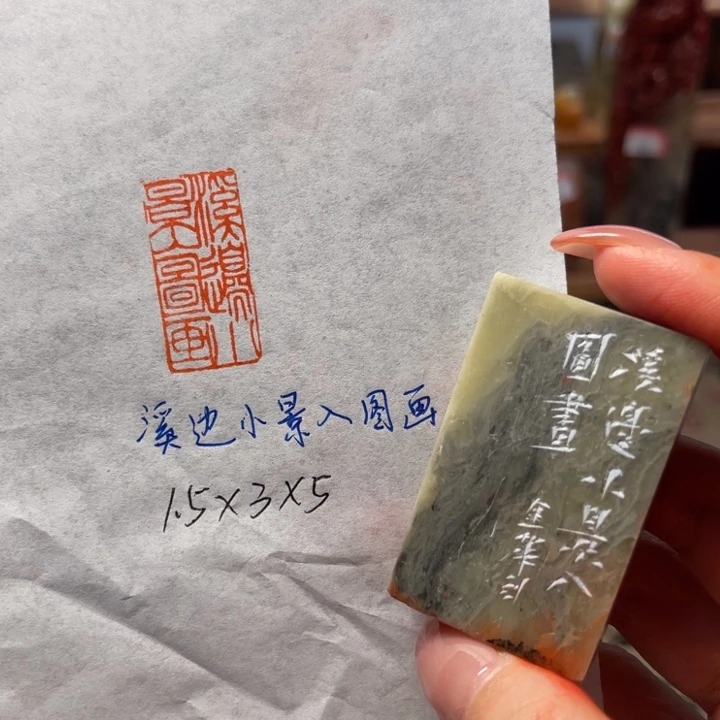 溪邊小
景入圖画
溪边小景入图画
1.5×3×5
溪邊小景入
圖畫
金華